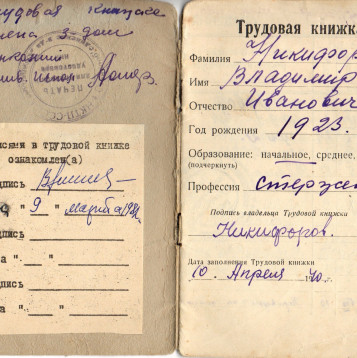 рудовая книжка
ена з-дом
исями в трудовой книжке
ознакомлен(а)
дпись
" 9 " марта 19
дпись
а " "
дпись
а " "
дпись
а " "
Трудовая книжка
Фамилия Никифор
Имя Владимир
Отчество Иванович
Год рождения 1923.
Образование: начальное, среднее,
(подчеркнуть)
Профессия стержен
Подпись владельца Трудовой книжки
Никифоров.
Дата заполнения Трудовой книжки
10. Апреля 40 г.